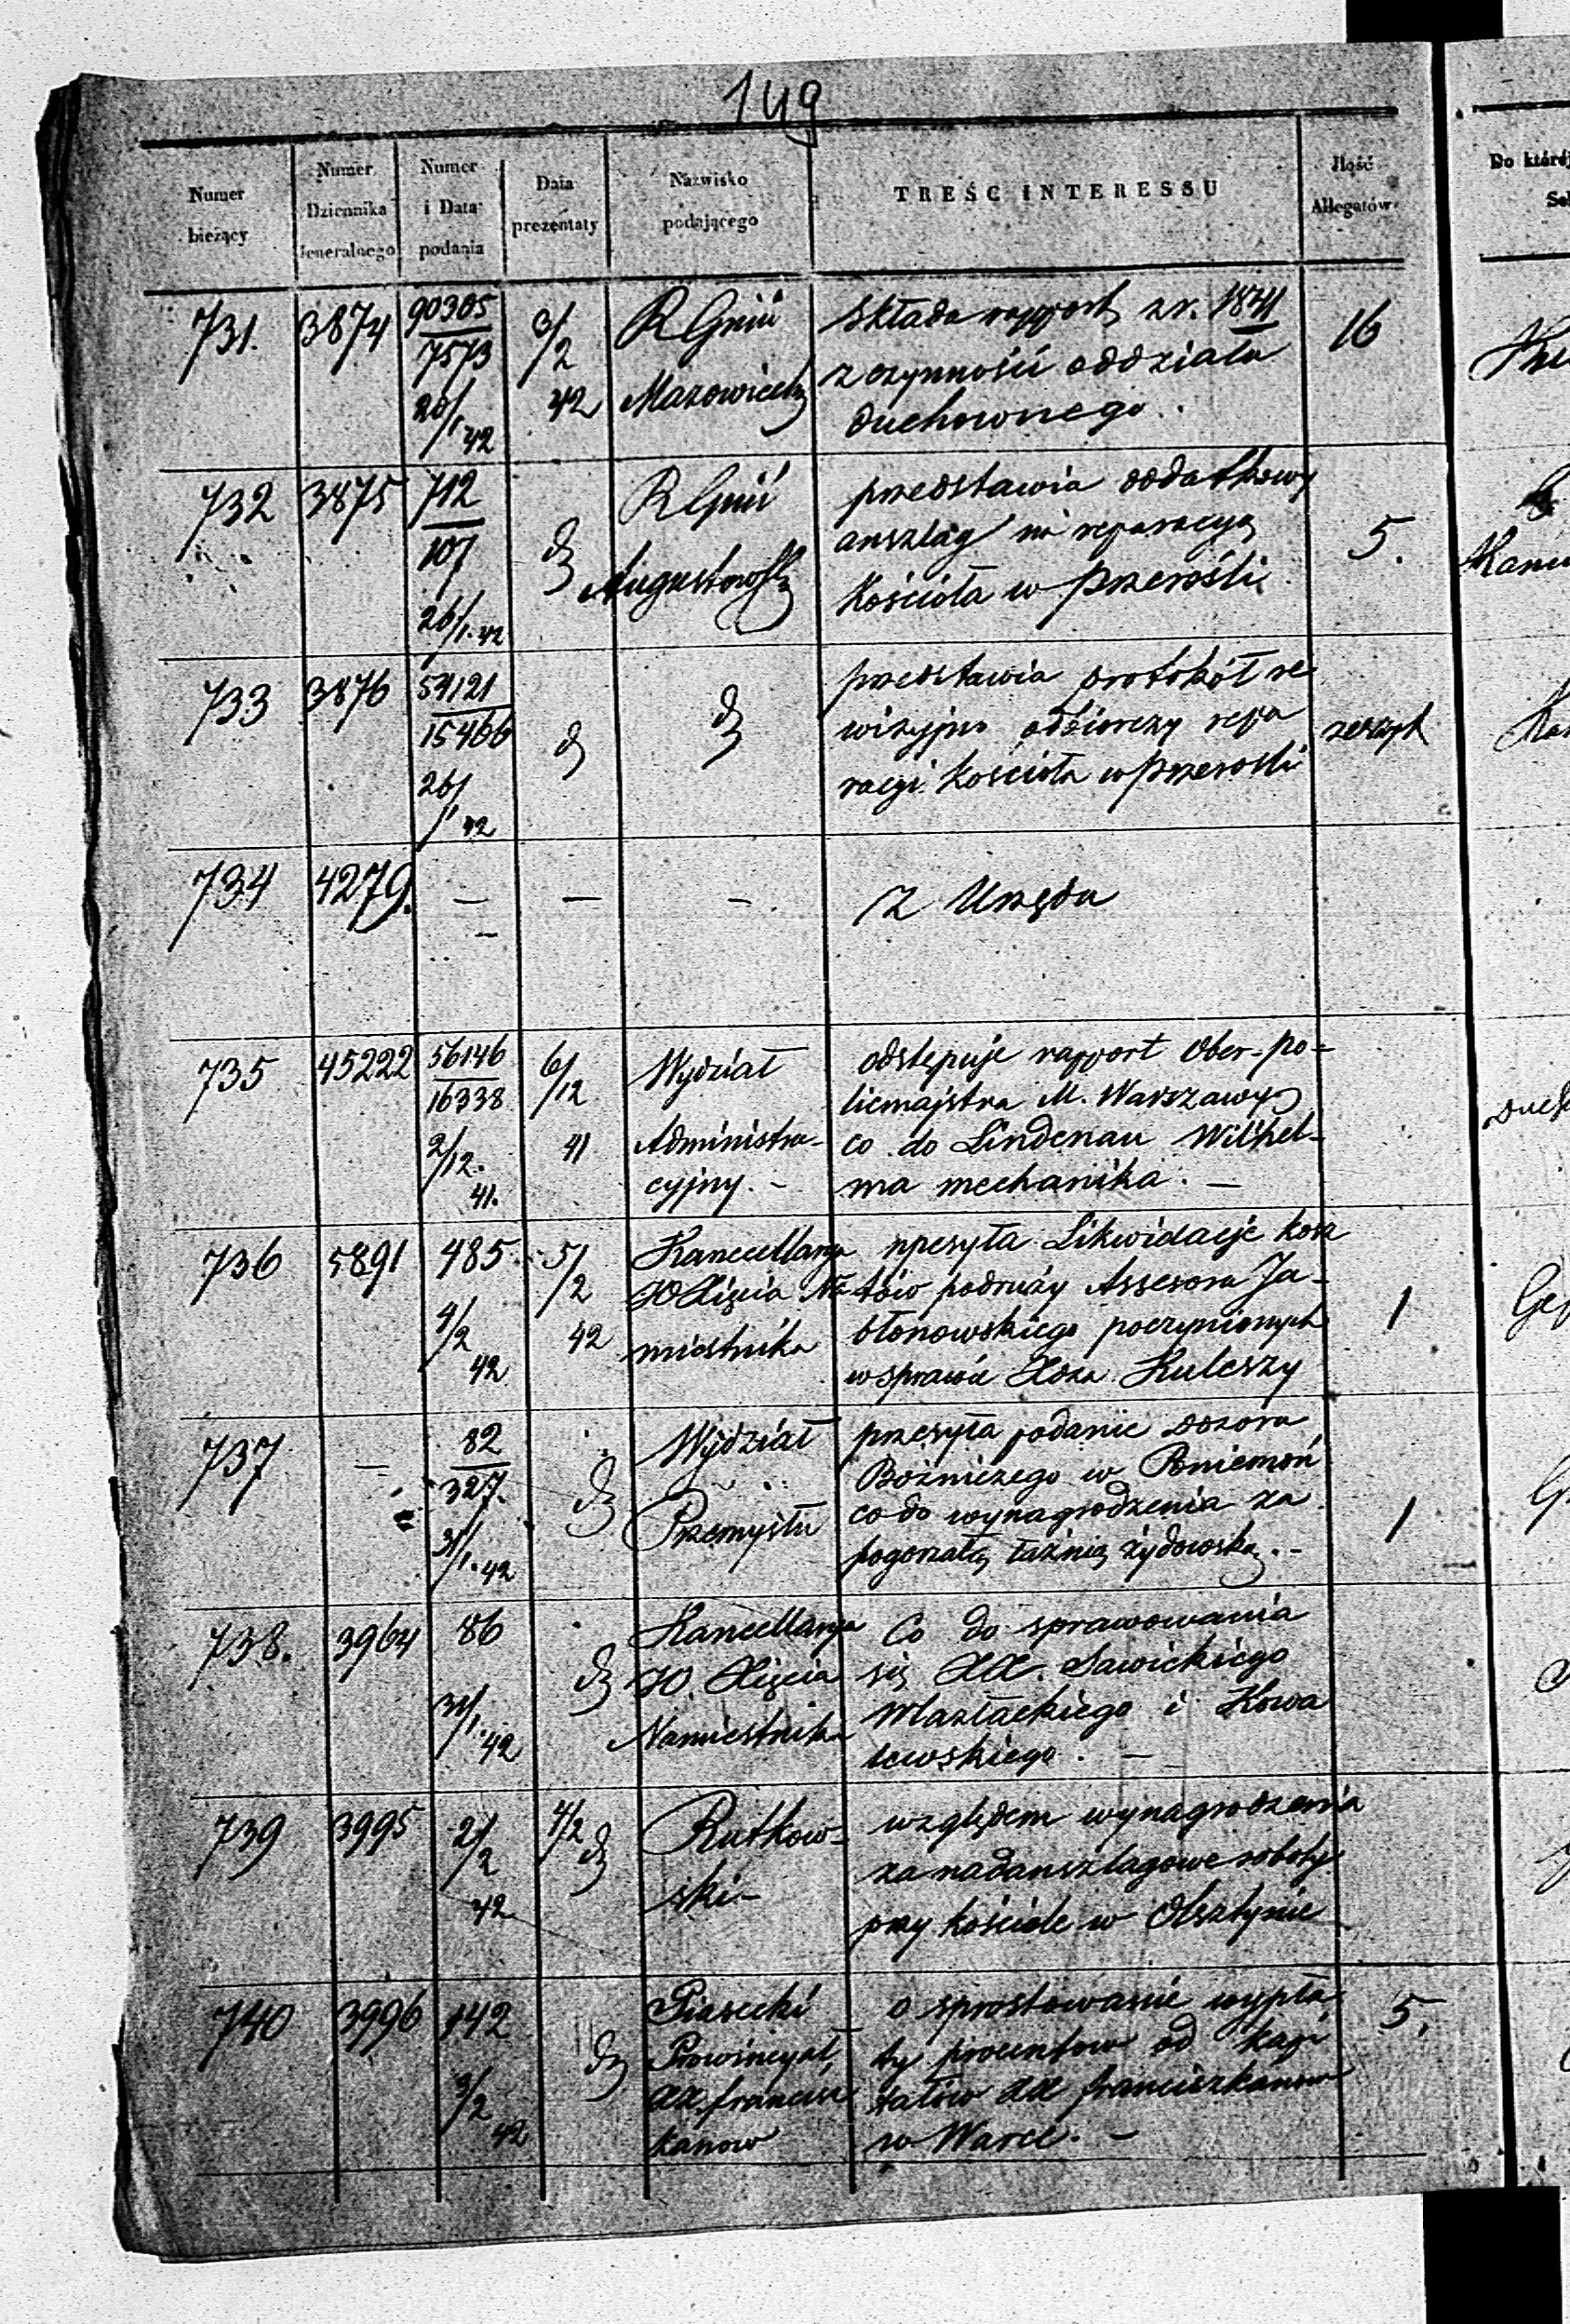 149
Numer bieżący
Numer Dziennika Jeneralnego
Numer i Data podania
Data prezentaty
Nazwisko podającego
TREŚĆ INTERESSU
Ilość Allegatów
Do której
731. 3874 90305 / 7573 20/1 42 3/2 42
R Gnii
Mazowiecki
Składa rapport, z r. 1841
z czynności oddziału
duchownego.
16
732 3875 712 / 107 26/1. 42
R Gnii
przedstawia dodatkowy
anszlag na reparacyą
Kościoła w Przerośli
5.
733 3876 54121 / 15466 26/1 42
przedstawia protokół re
wizyjno odbiorczy repa
racyi Kościoła w Przerośli
zeszyt
734 4279. — — —
Z Urzędu
735 45222 56146 / 16338 2/12. 41. 6/12 41
Wydział
Administra-
cyjny. -
odstępuje rapport Ober-po-
licmajstra M. Warszawy
co do Lindenau Wilhel-
ma mechanika. —
736 5891 485. 4/2 42 5/2 42
Kancellarya
JO Xięcia Na
miestnika
Likwidacje kosz
tów podróży Assesora Ja-
błonowskiego poczynionych
w sprawie Xdza Kuleszy
1
737 — 82 / 327. 31/1. 42
Wydział
Przemysłu
przesyła podanie dozoru
Bożniczego w Poniemoń
co do wynagrodzenia za
pogorzałą łaźnią żydowską. -
1
738. 3964 86 31/1. 42
Kancellarya
JO. Xięcia
Namiestnika
Co do sprawowania
się XX. Sawickiego
i Kowa
lewskiego. —
739 3995 2/2 42 4/2
Rutkow-
ski-
względem wynagrodzenia
za nadanszlagowe roboty
przy kościele w Olsztynie
740 3996 142 3/2 42
Piasecki
Prowincyał
XX. francisz
kanow
o sprostowanie wypła
ty procentow od kapi
tałów XX franciszkanow
w Warce. -
5.